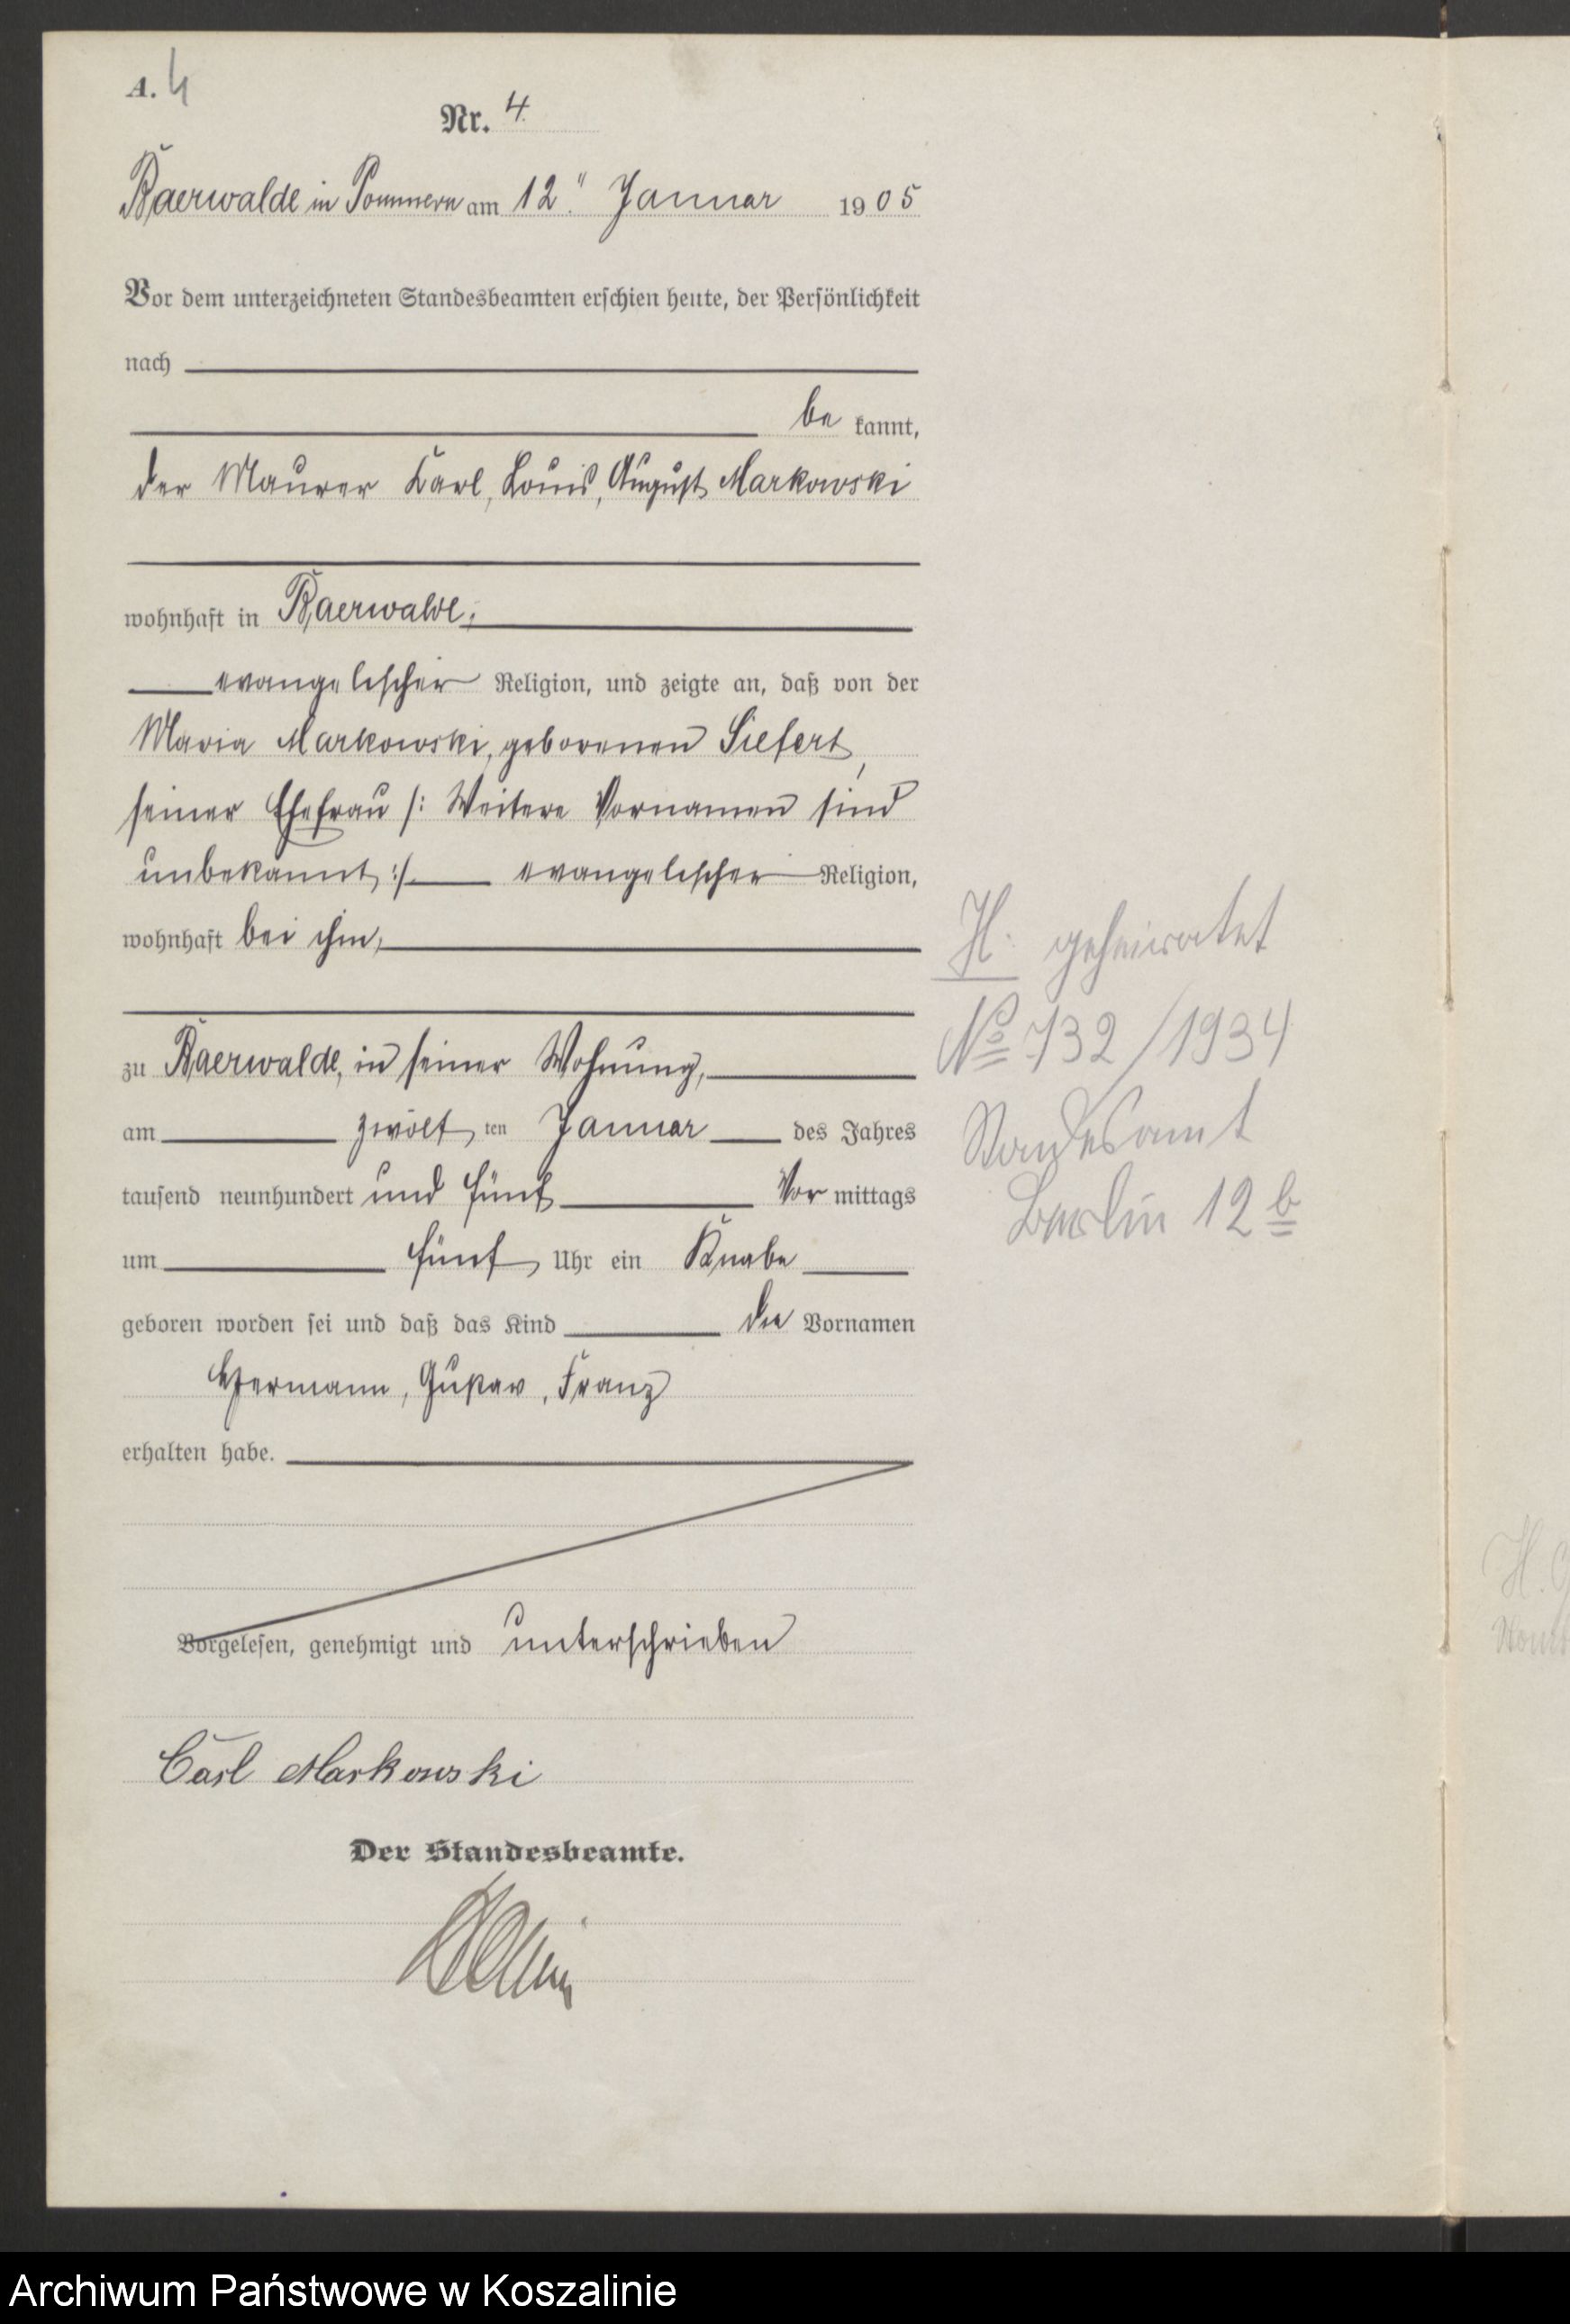 A. 4
Nr. 4.
Baerwalde in Pommern am 12ten Januar 1905
Vor dem unterzeichneten Standesbeamten erschien heute, der Persönlichkeit
nach
be kannt,
der Maurer Karl, Louis, August Markowski
wohnhaft in Baerwalde,
evangelischer Religion, und zeigte an, daß von der
Maria Markowski, geborenen Siefert,
seiner Ehefrau /: Weitere Vornamen sind
unbekannt :/ evangelischer Religion,
wohnhaft bei ihm,
zu Baerwalde, in seiner Wohnung,
am zwölf ten Januar des Jahres
tausend neunhundert und fünf Vor mittags
um fünf Uhr ein Knabe
geboren worden sei und daß das Kind die Vornamen
Hermann, Gustav, Franz
erhalten habe.
Vorgelesen, genehmigt und unterschrieben
Carl Markowski
Der Standesbeamte.
H. geheiratet
No 732/1934
Standesamt
Berlin 12b
H.
Archiwum Państwowe w Koszalinie